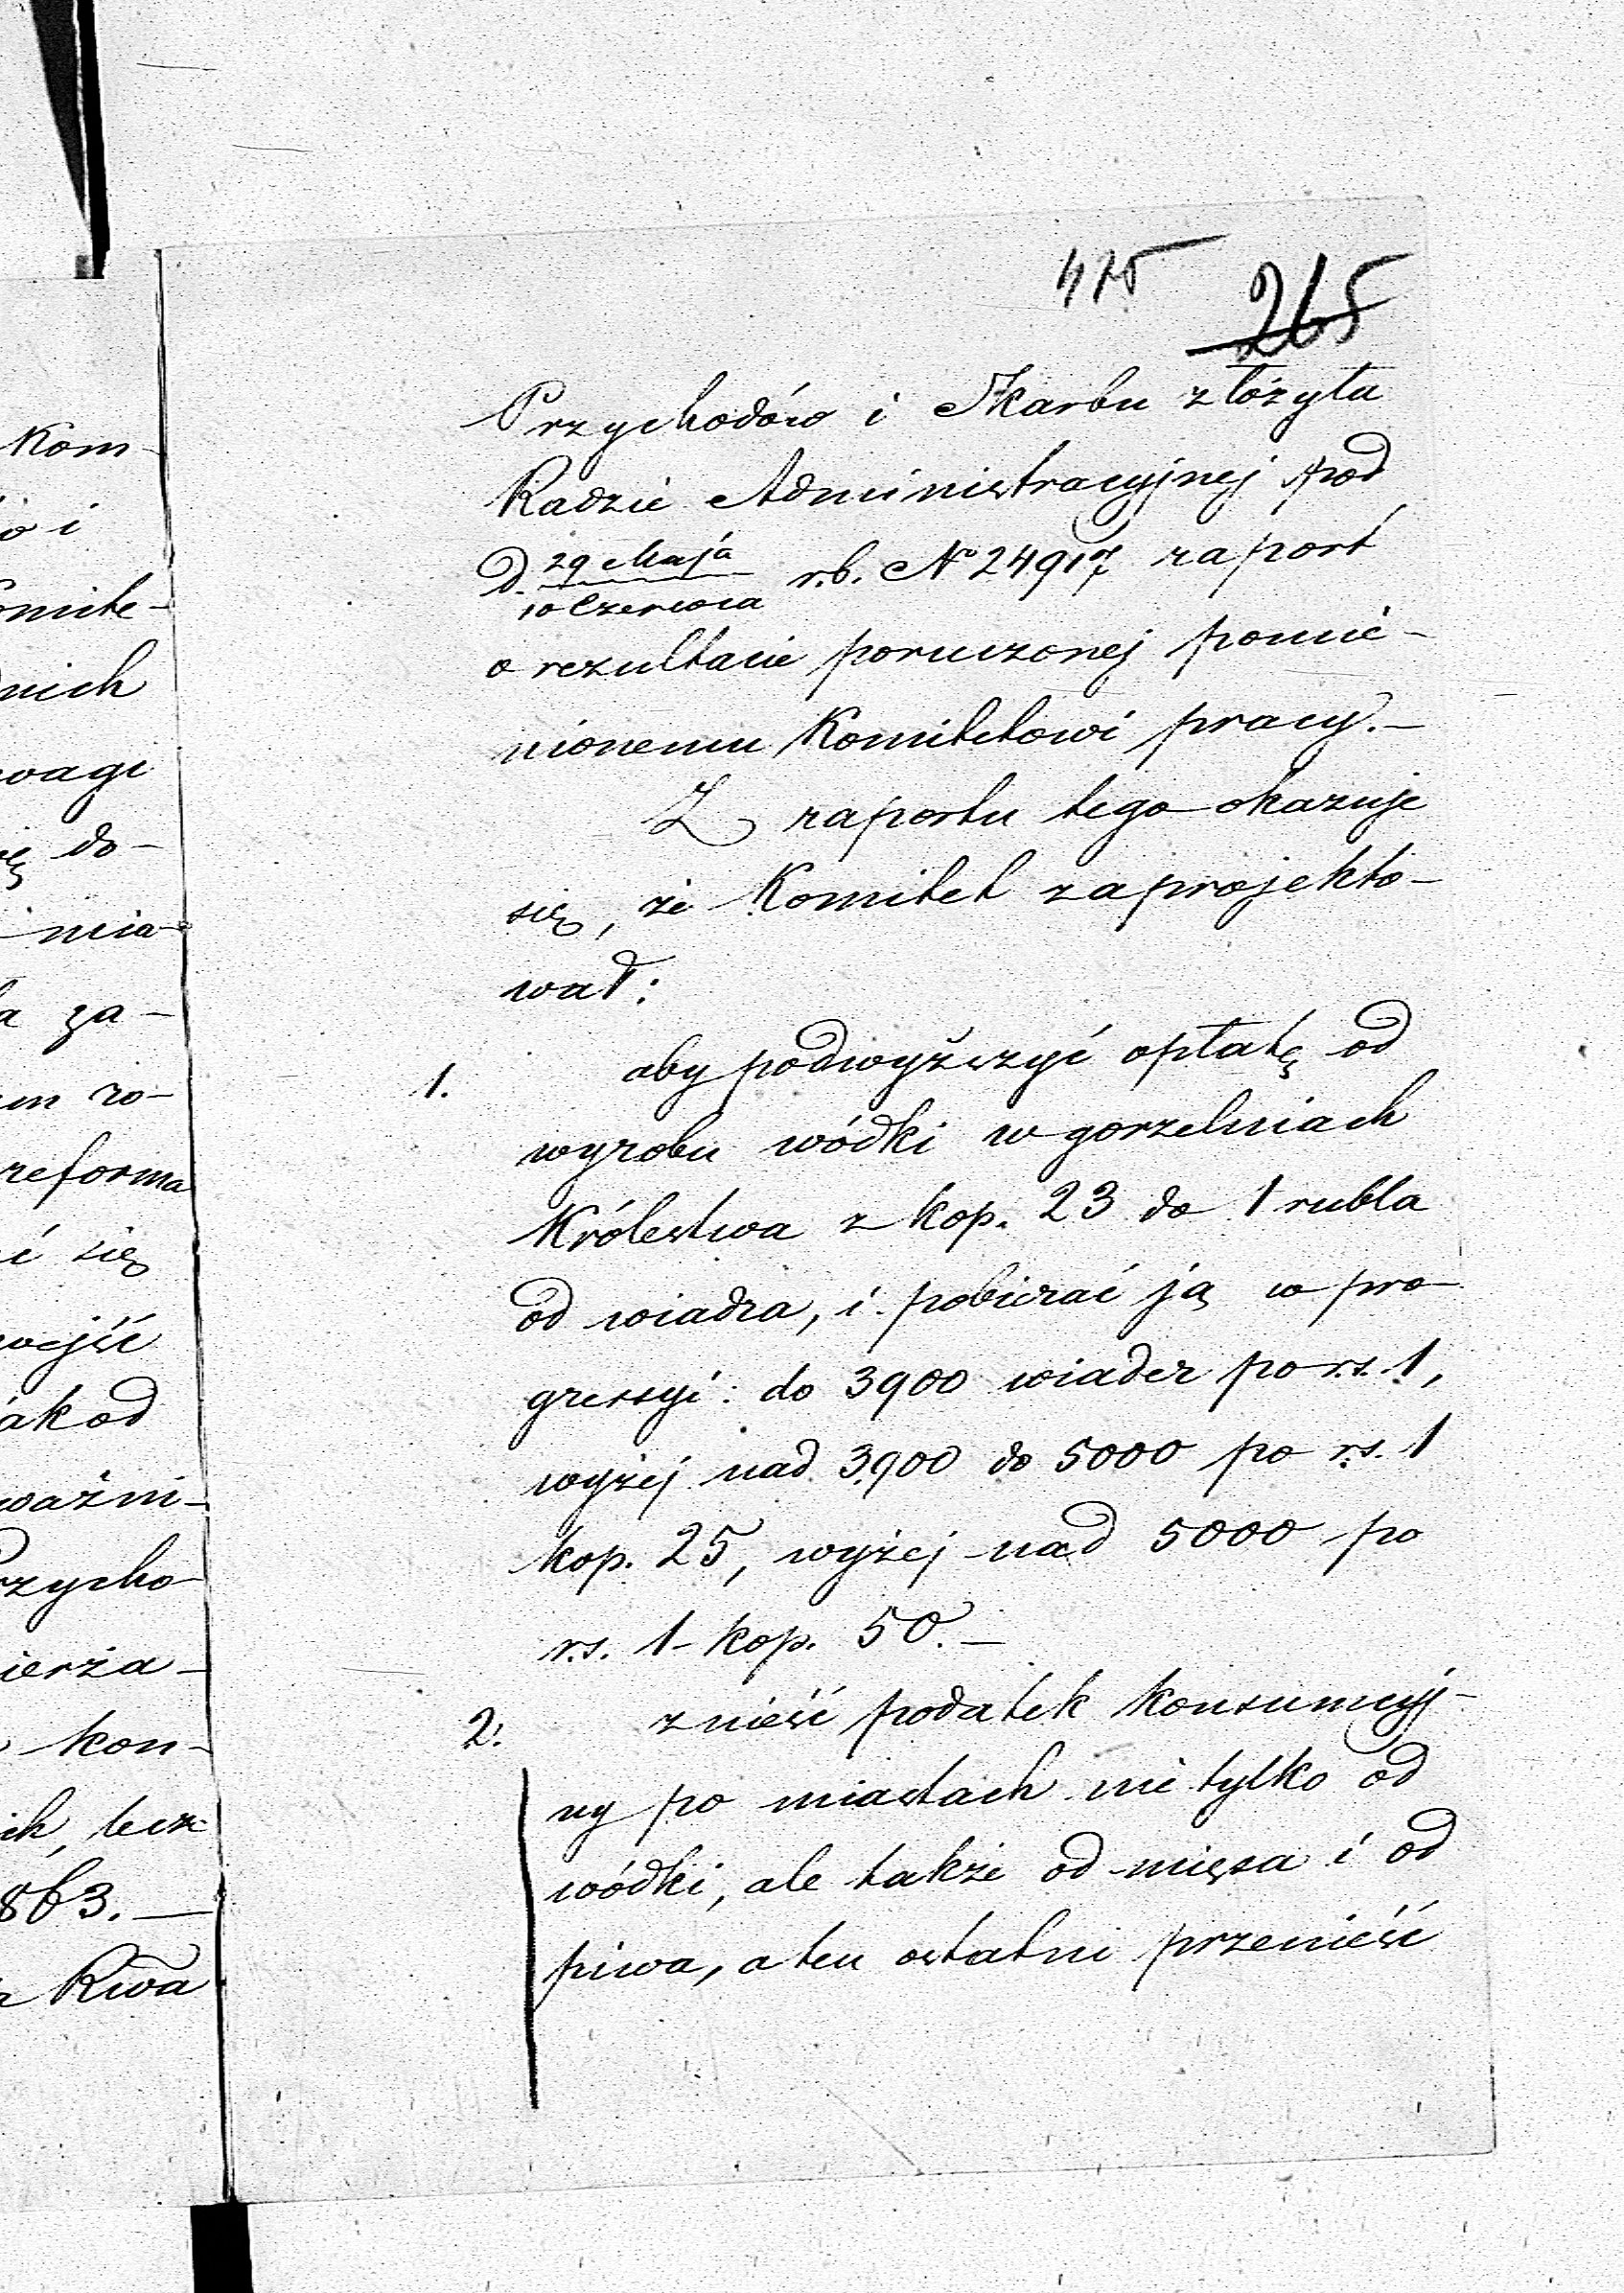 475 265
Przychodów i Skarbu złożyła
Radzie Administracyjnej pod
d. 29 Maja / 10 Czerwca r.b. No 24917 raport
o rezultacie poruczonej pomie-
nionemu Komitetowi pracy.—
Z raportu tego okazuje
się, że Komitet zaprojekto-
wał:
1. aby podwyższyć opłatę od
wyrobu wódki w gorzelniach
Królestwa z kop. 23 do 1 rubla
od wiadra, i pobierać ją w pro-
gressyi: do 3900 wiader po rs. 1,
wyżej nad 3900 do 5000 po rs. 1
kop. 25, wyżej nad 5000 po
rs. 1 kop. 50.—
2. znieść podatek konsumcyj-
ny po miastach nie tylko od
wódki, ale także od mięsa i od
piwa, a ten ostatni przenieść
Kom-
o i
omite-
dnich
wagi
ię do-
mia-
a za-
em ro-
reforma
ć się
wejść
ak od
ważni-
rzycho-
ierza-
kon-
ch, lecz
863.—
Kwa